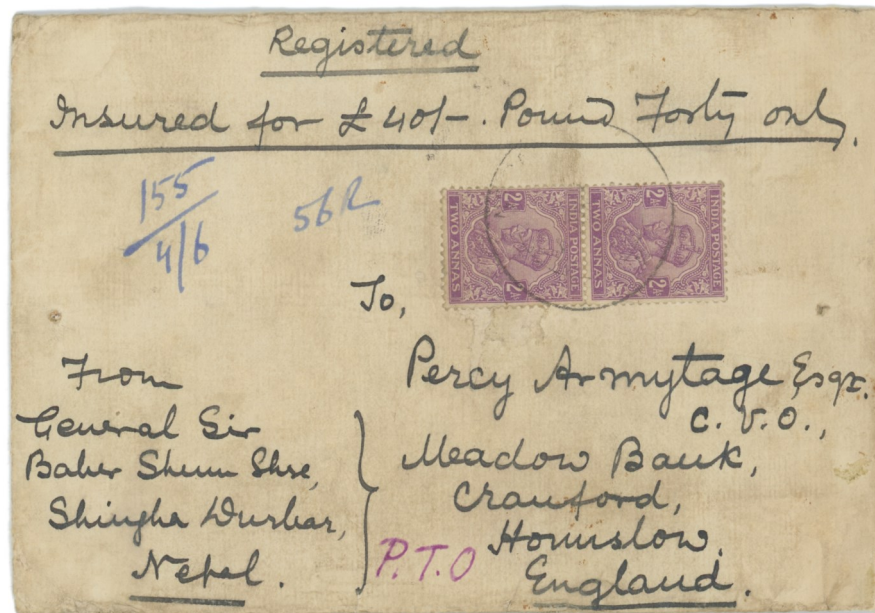 Registered
Insured for £ 40/-. Pound Forty only.
155
4/6
56R
INDIA POSTAGE
TWO ANNAS
2As
2As
INDIA POSTAGE
TWO ANNAS
2As
2As
To,
Percy Armytage Esqr.
C.V.O.,
Meadow Bank,
Cranford,
Hounslow.
England.
From
General Sir
Baber Shum Shre,
Shingha Durbar,
Nepal.
P.T.O